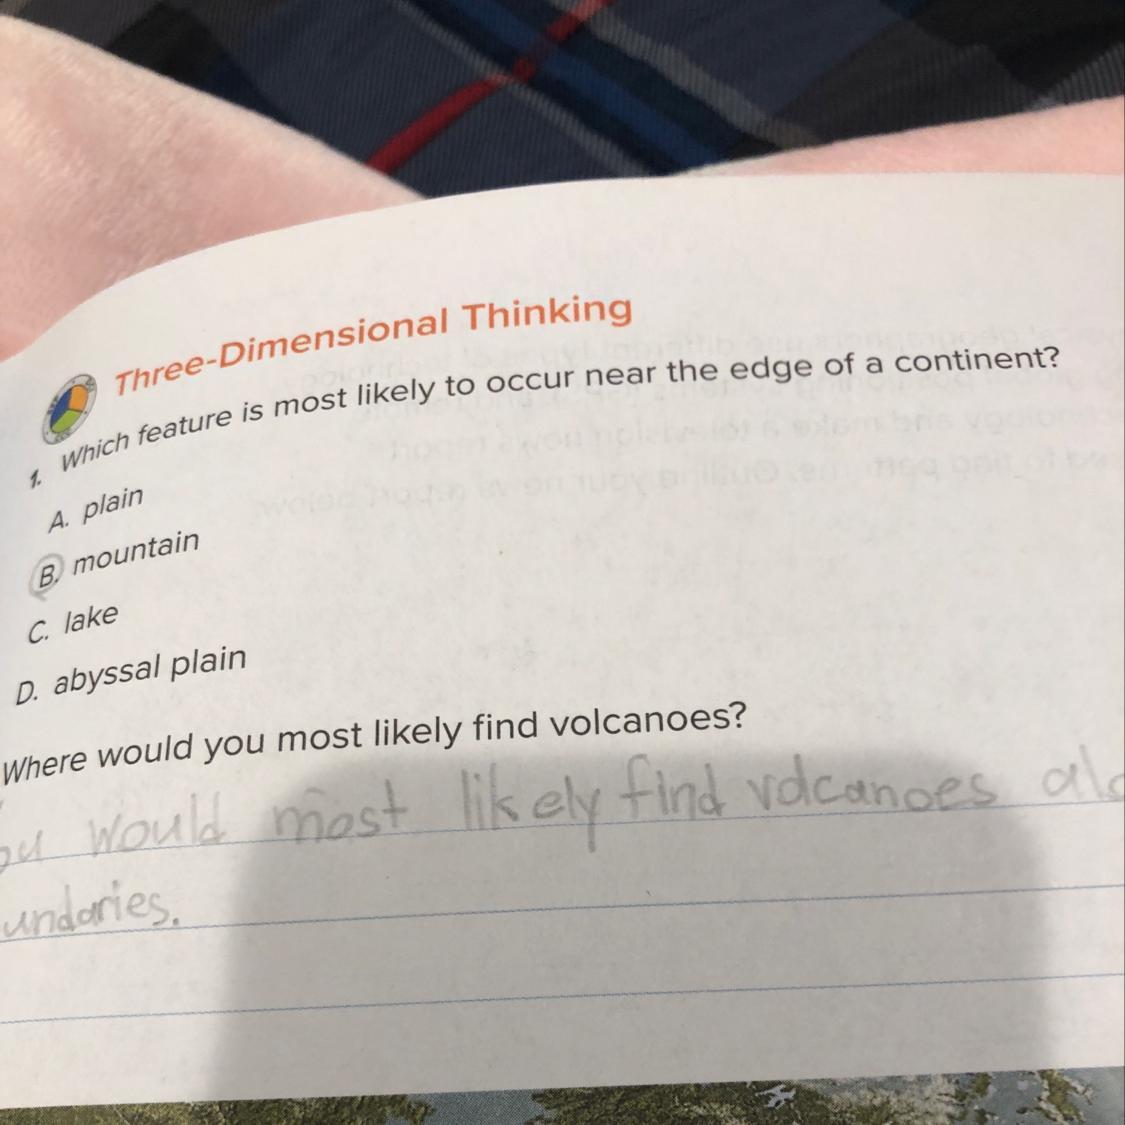 Three-Dimensional Thinking
1. Which feature is most likely to occur near the edge of a continent?
A. plain
B. mountain
C. lake
D. abyssal plain
Where would you most likely find volcanoes?
ou would most likely find volcanoes alo
undaries.